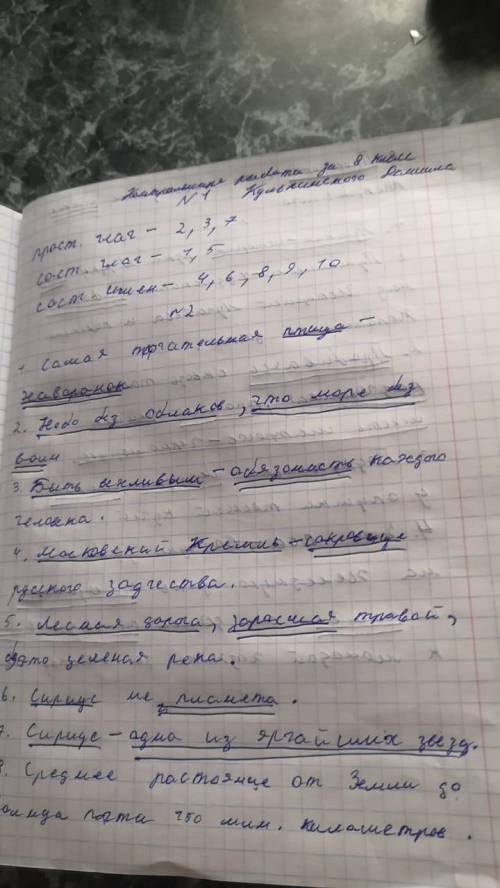 Контрольная работа за 8 класс
№1 Кульчинского Даниила
прост. глаг – 2, 3, 7
сост. глаг – 1, 5
сост. имен – 4, 6, 8, 9, 10
№2
Самая трогательная птица –
жаворонок
2. Небо без облаков, что море без
волн
3. Быть вежливым – обязаность каждого
человека.
4. Московский Кремль – сокровище
русского зодчества.
5. Лесная дорога, заросшая травой,
зеленая река.
6. Сириус не планета.
7. Сириус – одна из ярчайших звезд.
8. Среднее растояние от Земли до
почти 150 млн. километров.